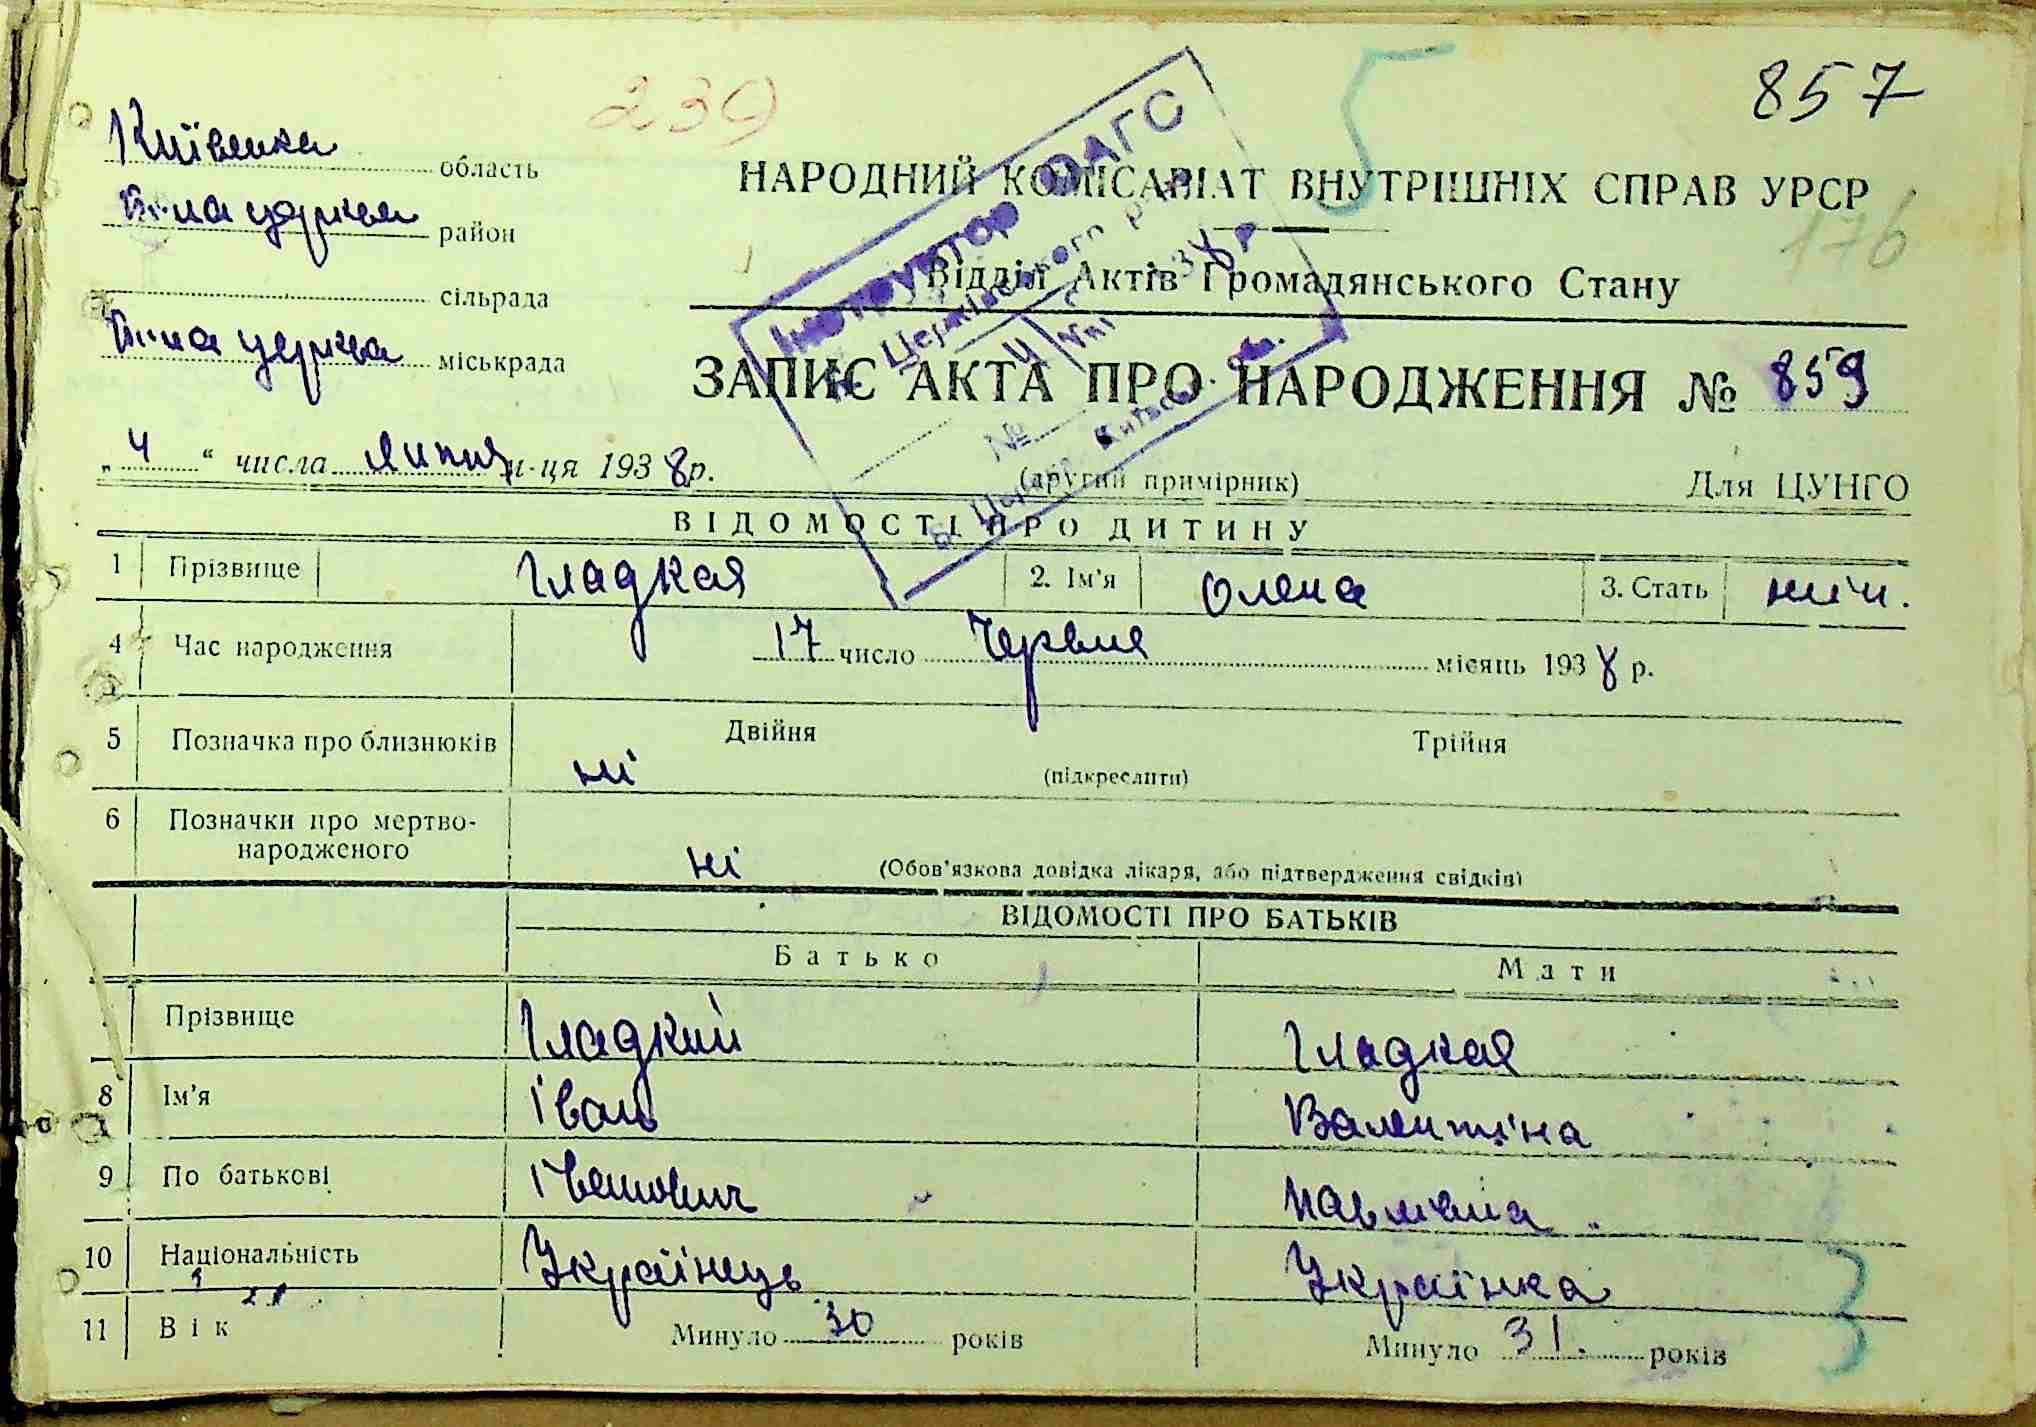 239
857
Київська область
Біла церква район
сільрада
Біла церква міськрада
НАРОДНИЙ КОМІСАРІАТ ВНУТРІШНІХ СПРАВ УРСР
176
Відділ Актів Громадянського Стану
ЗАПИС АКТА ПРО НАРОДЖЕННЯ № 859
„4“ числа липня м-ця 1938 р.
(другий примірник)
Для ЦУНГО
Інструктор ЗАГС
ВІДОМОСТІ ПРО ДИТИНУ
1 Прізвище Гладкая 2. Ім'я Олена 3. Стать жіч.
4 Час народження 17 число Червня місяць 1938 р.
5 Позначка про близнюків ні Двійня Трійня
(підкреслити)
6 Позначки про мертво-
народженого ні (Обов'язкова довідка лікаря, або підтвердження свідків)
ВІДОМОСТІ ПРО БАТЬКІВ
Батько Мати
Прізвище Гладкий Гладкая
8 Ім'я Іван Валентіна
9 По батькові Іванович Павлівна
10 Національність Українець Українка
11 Вік Минуло 30 років Минуло 31. років